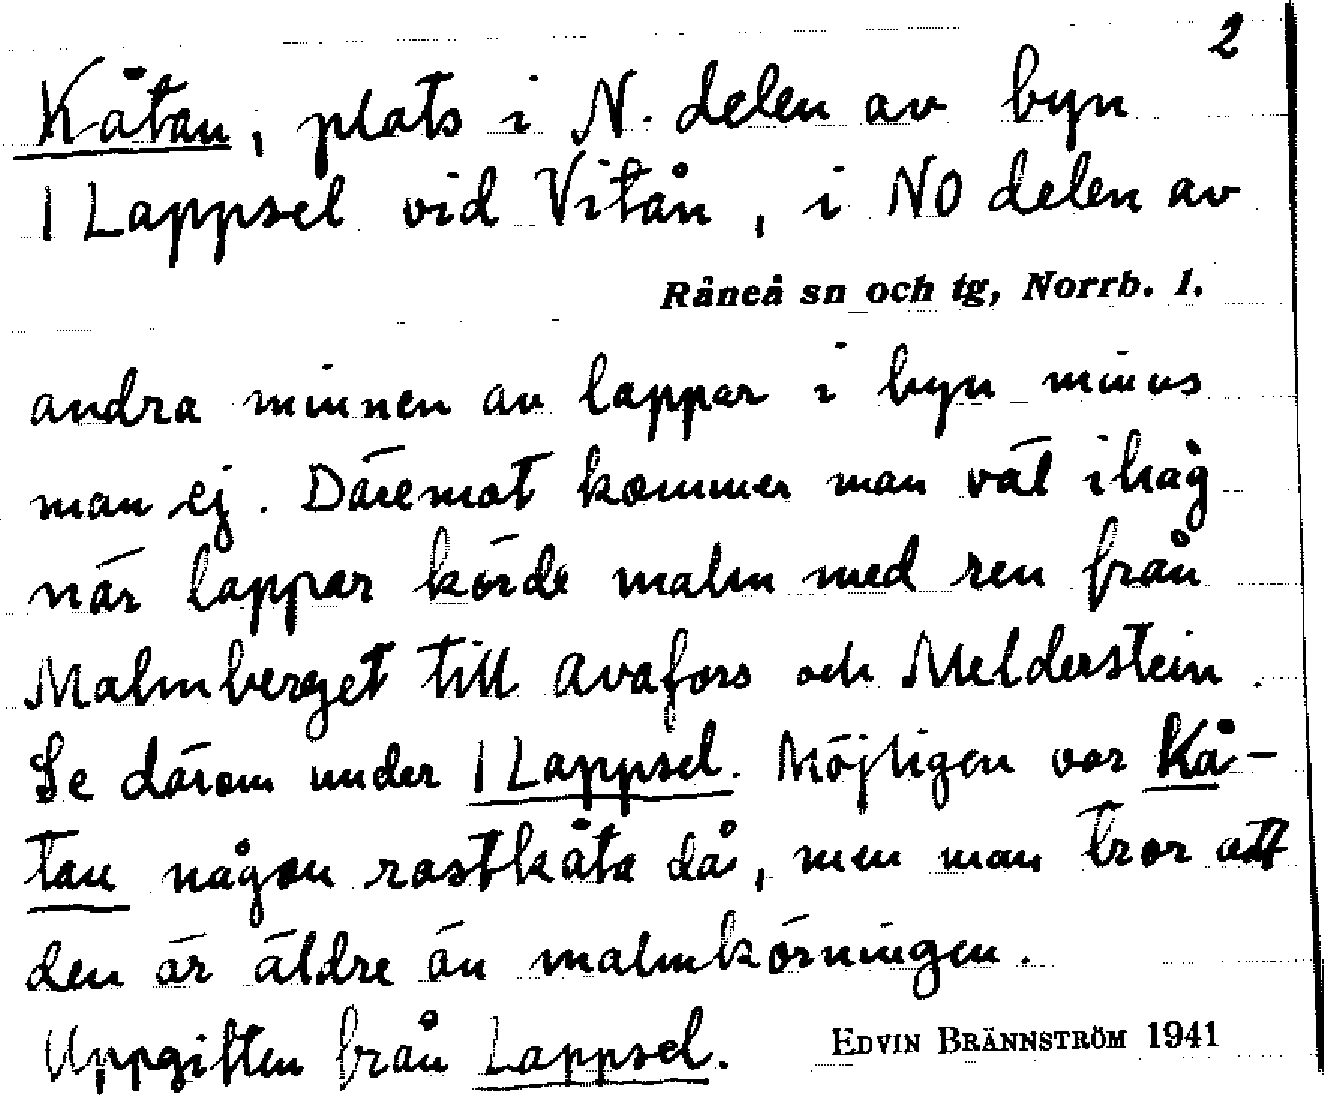 2
Kåtan, plats i N. delen av byn
1 Lappsel vid Vitån, i NO delen av
Råneå sn och tg, Norrb. l.
andra minnen av lappar i byn minns
man ej. Däremot kommer man väl ihåg
när lappar körde malm med ren från
Malmberget till Avafors och Melderstein.
Se därom under 1 Lappsel. Möjligen var Kå-
tan någon rastkåta då, men man tror att
den är äldre än malmkörningen.
Uppgiften från Lappsel.
EDVIN BRÄNNSTRÖM 1941